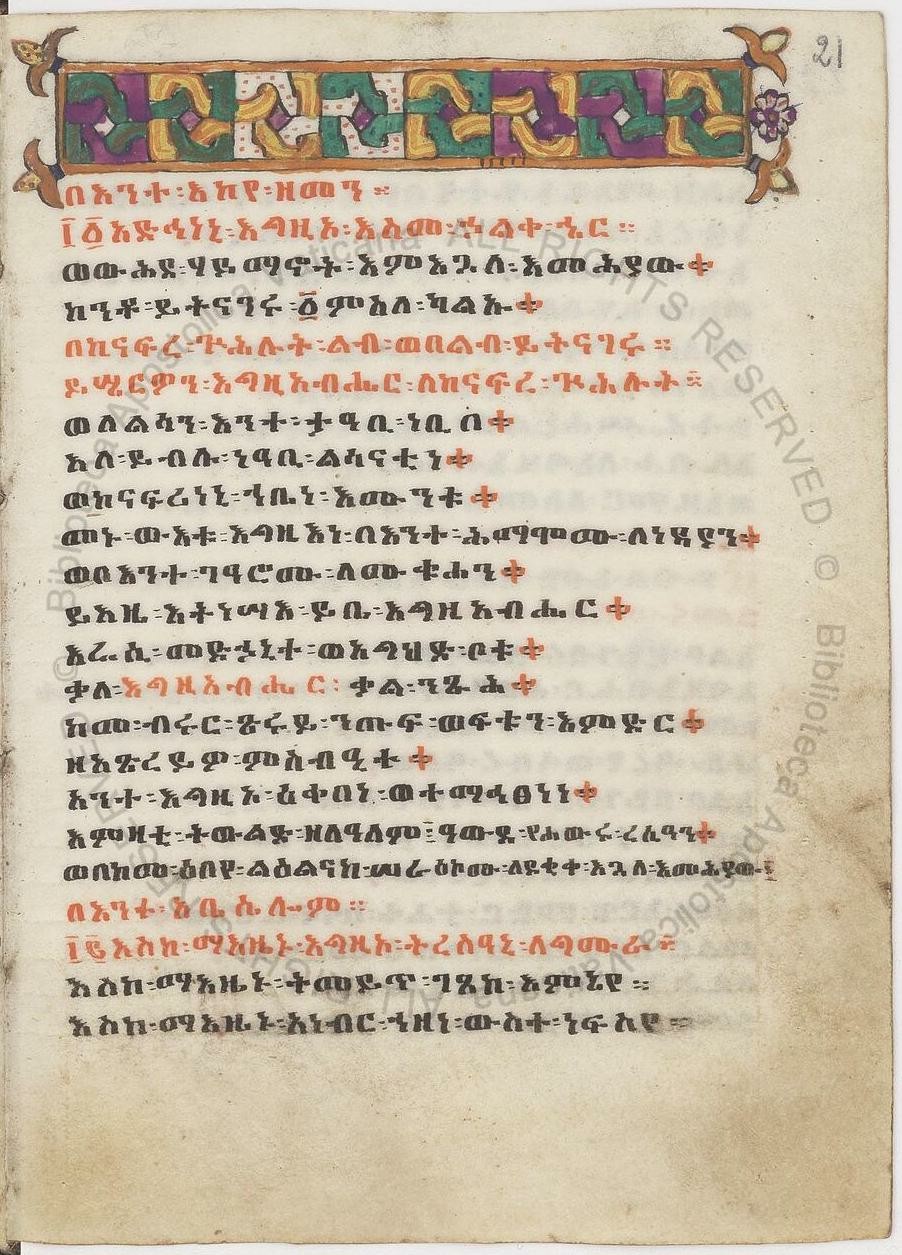 21
በእንተ፡እኩየ፡ዘመን።
፲፩አድኅነኒ፡እግዚኦ፡እስመ፡ኃልቀ፡ኄር።
ወውሕደ፡ሃይማኖት፡እምእጓለ፡እመሕያው
ከንቶ፡ይትናገሩ፡፩ምስለ፡ካልኡ
በከናፍረ፡ጕሕሉት፡ልብ፡ወበልብ፡ይትናገሩ።
ይሤርዎን፡እግዚአብሔር፡ለከናፍረ፡ጕሕሉት።
ወለልሳን፡እንተ፡ታዓቢ፡ነቢበ
እለ፡ይብሉ፡ነዓቢ፡ልሳናቲነ
ወከናፍሪነኒ፡ኀቤነ፡እሙንቱ
መኑ፡ውእቱ፡እግዚእነ፡በእንተ፡ሕማሞሙ፡ለነዳያን
ወበእንተ፡ገዓሮሙ፡ለሙቁሐን
ይእዜ፡እትነሣእ፡ይቤ፡እግዚአብሔር
እሬሲ፡መድኃኒተ፡ወእግህድ፡ቦቱ
ቃለ፡እግዚአብሔር፡ቃል፡ንጹሕ
ከመ፡ብሩር፡ጽሩይ፡ንጡፍ፡ወፍቱን፡እምድር
ዘአጽረይዎ፡ምስብዒተ
አንተ፡እግዚኦ፡ዕቀበነ፡ወተማኅፀነነ
እምዛቲ፡ትውልድ፡ዘለዓለም፡ዓውደ፡የሐውሩ፡ረሲዓን
ወበከመ፡ዕበየ፡ልዕልናከ፡ሠራዕኮሙ፡ለደቂቀ፡እጓለ፡እመሕያው።
በእንተ፡አቤሴሎም።
፲፪እስከ፡ማእዜኑ፡እግዚኦ፡ትረስዓኒ፡ለግሙራ።
እስከ፡ማእዜኑ፡ትመይጥ፡ገጸከ፡እምኔየ።
እስከ፡ማእዜኑ፡አነብር፡ኀዘነ፡ውስተ፡ነፍስየ።
© Biblioteca Apostolica Vaticana ALL RIGHTS RESERVED